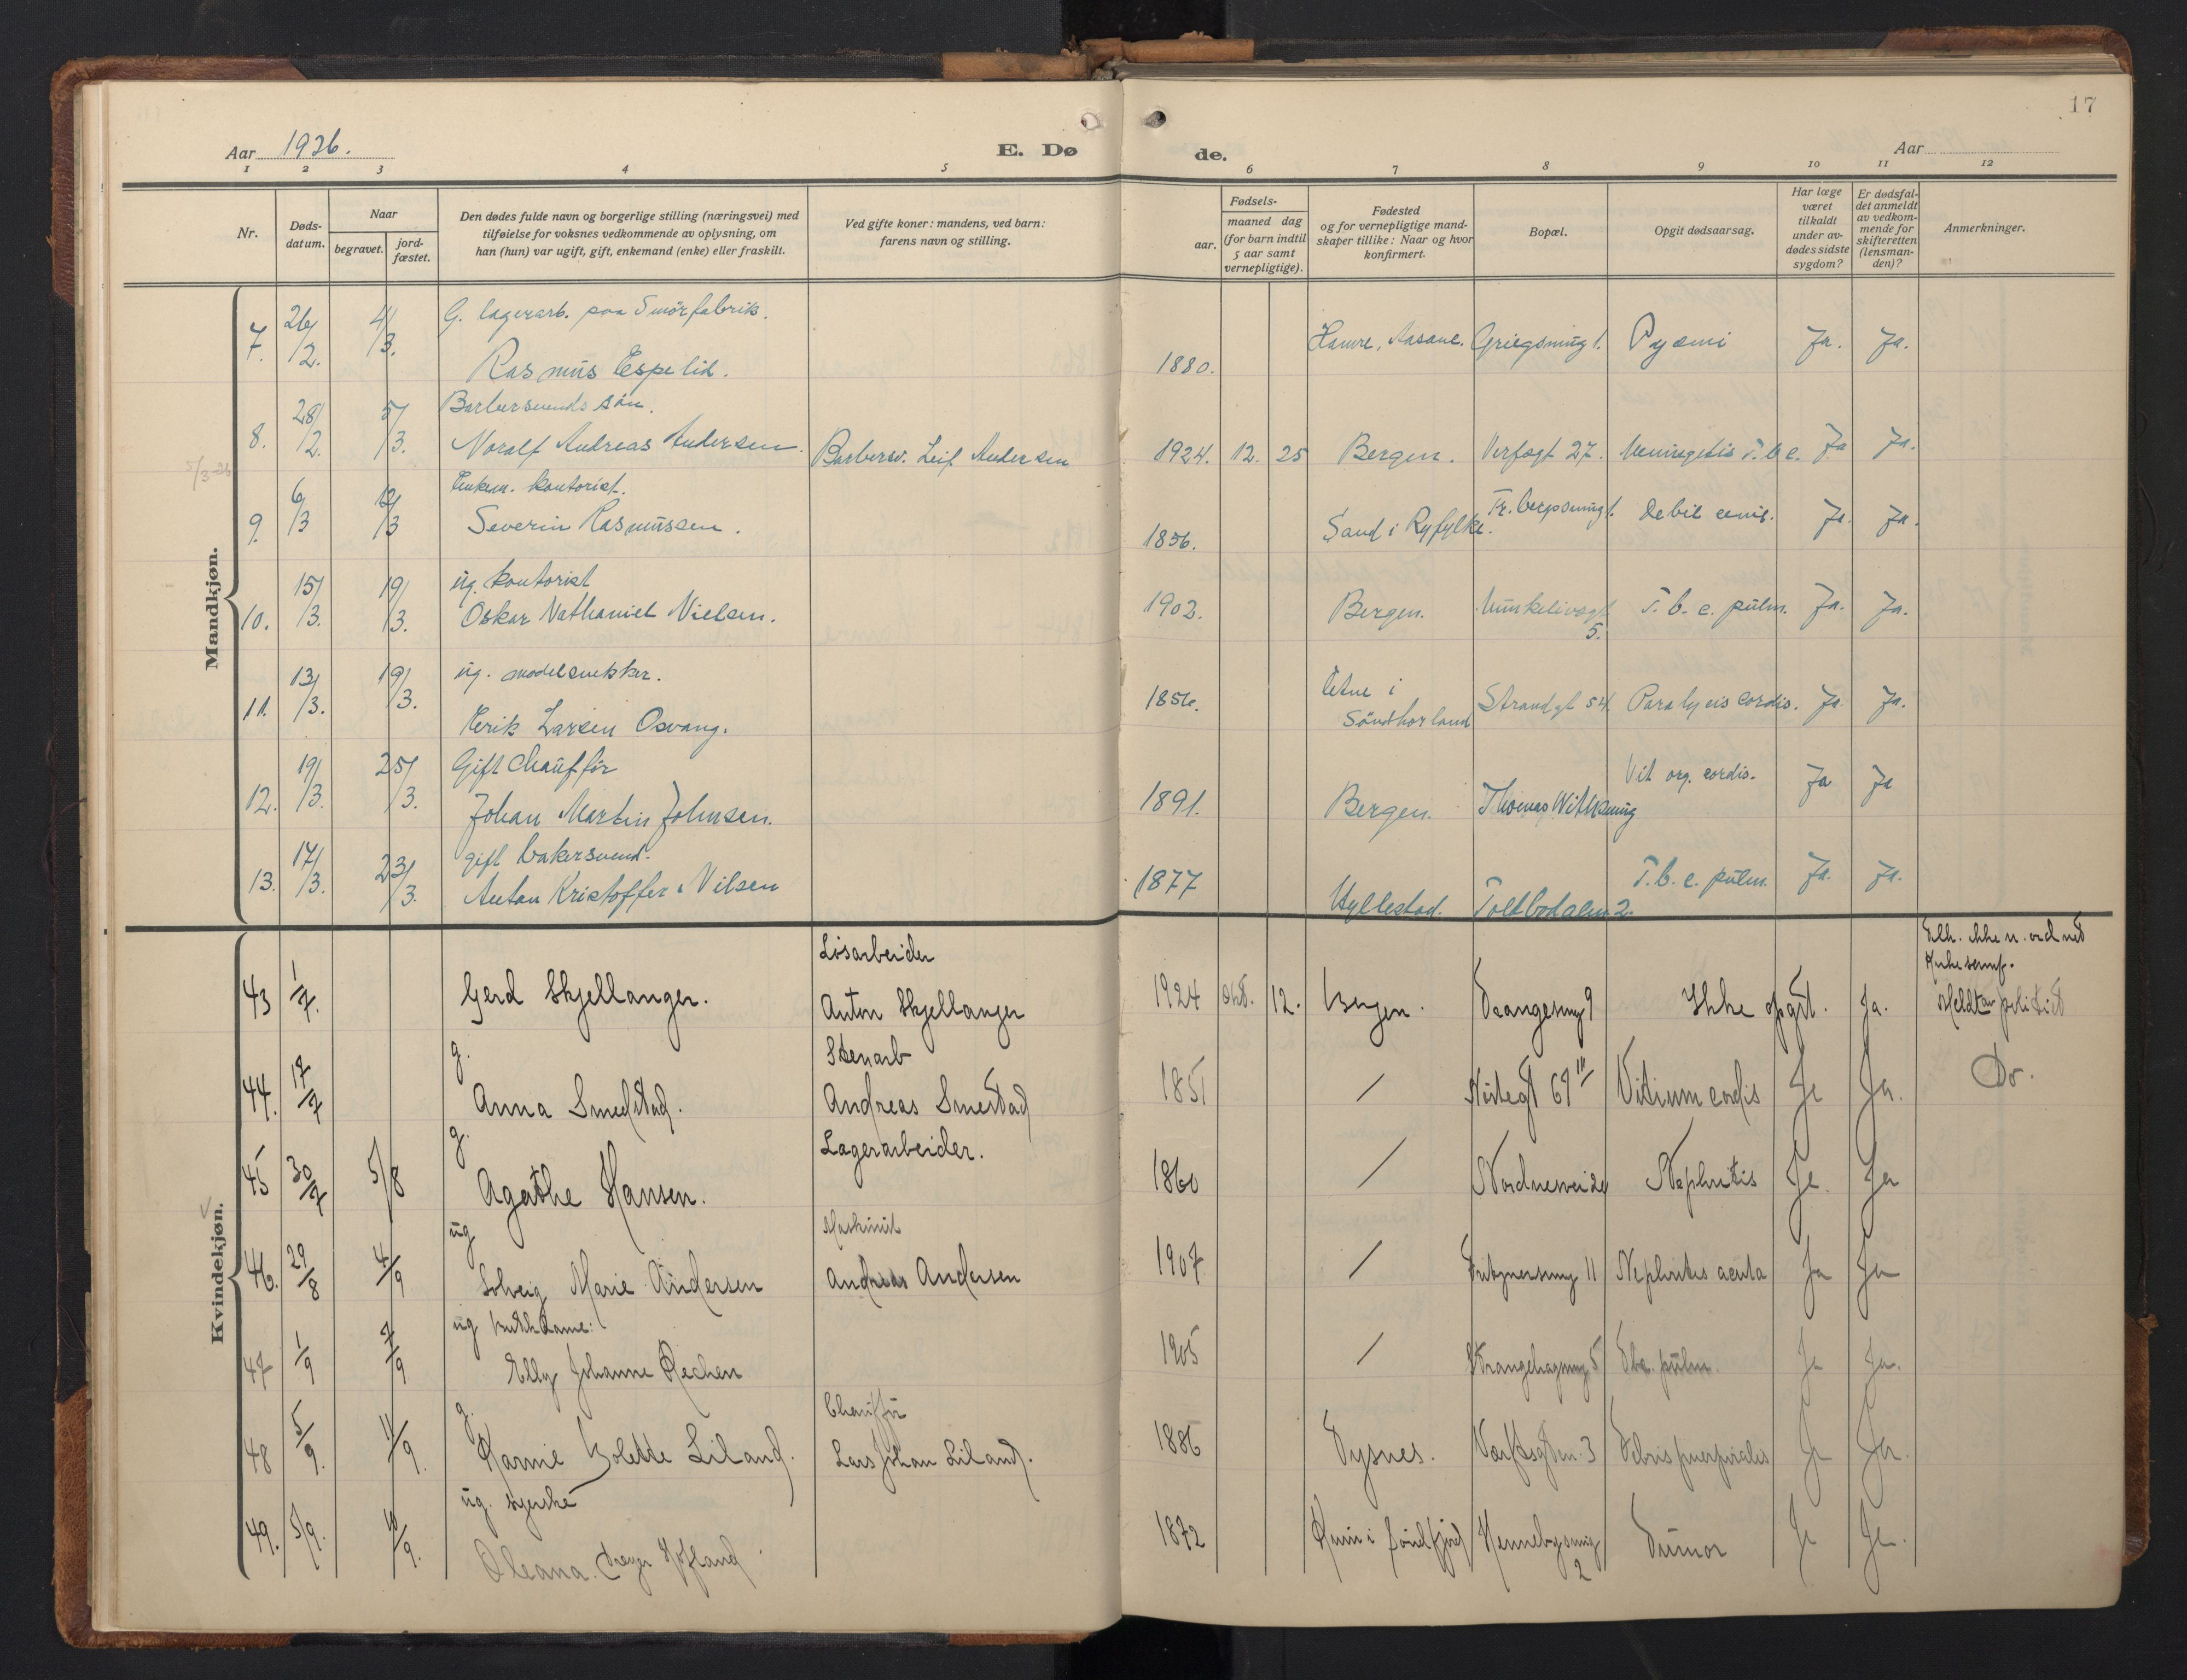 17
Aar 1926.
E. Dø
de.
Aar
1 2 3 4 5 6 7 8 9 10 11 12
Nr.
Døds-
datum.
Naar
begravet.
jord-
fæstet.
Den dødes fulde navn og borgerlige stilling (næringsvei) med
tilføielse for voksnes vedkommende av oplysning, om
han (hun) var ugift, gift, enkemand (enke) eller fraskilt.
Ved gifte koner: mandens, ved barn:
farens navn og stilling.
Fødsels-
aar.
maaned dag
(for barn indtil
5 aar samt
vernepligtige).
Fødested
og for vernepligtige mand-
skaper tillike: Naar og hvor
konfirmert.
Bopæl.
Opgit dødsaarsag.
Har læge
været
tilkaldt
under av-
dødes sidste
sygdom?
Er dødsfal-
det anmeldt
av vedkom-
mende for
skifteretten
(lensman-
den)?
Anmerkninger.
Mandkjøn.
G. lagerarb. paa Smörfabrik.
7. 26/2. 4/3. Rasmus Espelid. 1880. Hamre, Aasane. Griegsmug 1. Pyæmi Ja. Ja.
Barbersvends sön.
8. 28/2. 5/3. Noralf Andreas Andersen. Barbersv. Leif Andersen 1924. 12. 25 Bergen. Verfsgt 27. Meningitis T.b.c. Ja Ja.
5/3-26
Enkem. kontorist.
9. 6/3 12/3 Severin Rasmussen. 1856. Sand i Ryfylke. Debil senil. Ja. Ja.
ug. kontorist
10. 15/3. 19/3. Oskar Nathaniel Nielsen. 1903. Bergen. Munkelivsgt 5. T.b.c. pulm. Ja. Ja.
ug. modelsnekker.
11. 13/3. 19/3. Erik Larsen Osvang. 1856. Etne i Söndhorland Strandgt 54. Paralysis cordis. Ja. Ja.
Gift chauffør
12. 19/3. 25/3. Johan Martin Johnsen. 1891. Bergen. Thomas Wittsmug Vit. org. cordis. Ja Ja
gift bakersvend.
13. 17/3. 23/3. Anton Kristoffer Nilsen 1877 Hyllestad. Toldbodalm. 2. T.b.c. pulm. Ja. Ja.
Kvindekjøn.
Løsarbeider
43 1/7. Gerd Skjellanger. Anton Skjellanger 1924 Okt. 12. Bergen. Vrangesmug 9 Ikke opgit. Ja. Meldt av politiet
g. Stenarb
44. 17/7 Anna Smedstad. Andreas Smestad 1851 / Nøstegt 69 III Vitium cordis Ja Ja. Do.
g. Lagerarbeider.
45 30/7 5/8 Agathe Hansen. 1860 / Nordnesvei 24 Nephritis Ja. Ja
ug Maskinist
46. 29/8 4/9 Solveig Marie Andersen Andreas Andersen 1907 / Fritznersmug 11 Nephritis acuta Ja Ja
ug butikdame:
47 1/9 7/9 Elly Johanne Rechen 1905 / Strangehagsmug 5 Tbc. pulm. Ja Ja.
g. Chauffør
48 5/9. 11/9. Karnie Bolette Liland. Lars Johan Liland. 1886 Dysnes. Verftsgten. 3 Febris puerperalis Ja Ja.
ug. syerske
49. 5/9. 10/9. Oleana Hofland 1872 Kinn i Søndfjord Hennebysmug 2 Tumor Ja Ja.